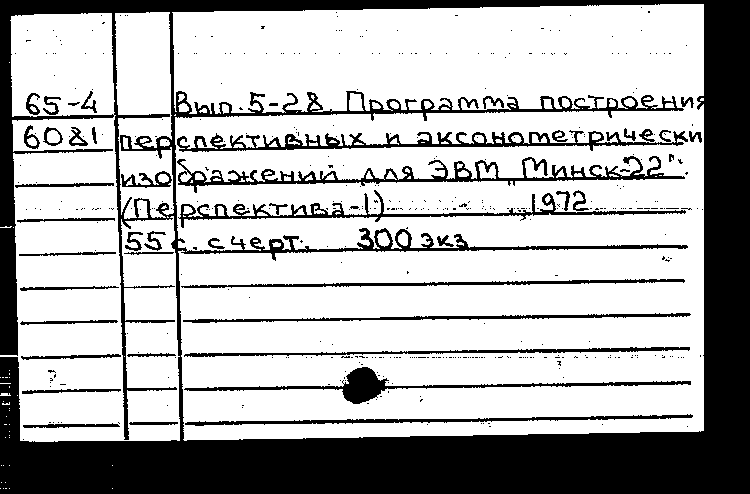 65-4 Вып. 5-28. Программа построения
6081 перспективных и аксонометрически
изображений для ЭВМ „Минск-22".
(Перспектива-1) 1972
55 с. с черт. 300 экз